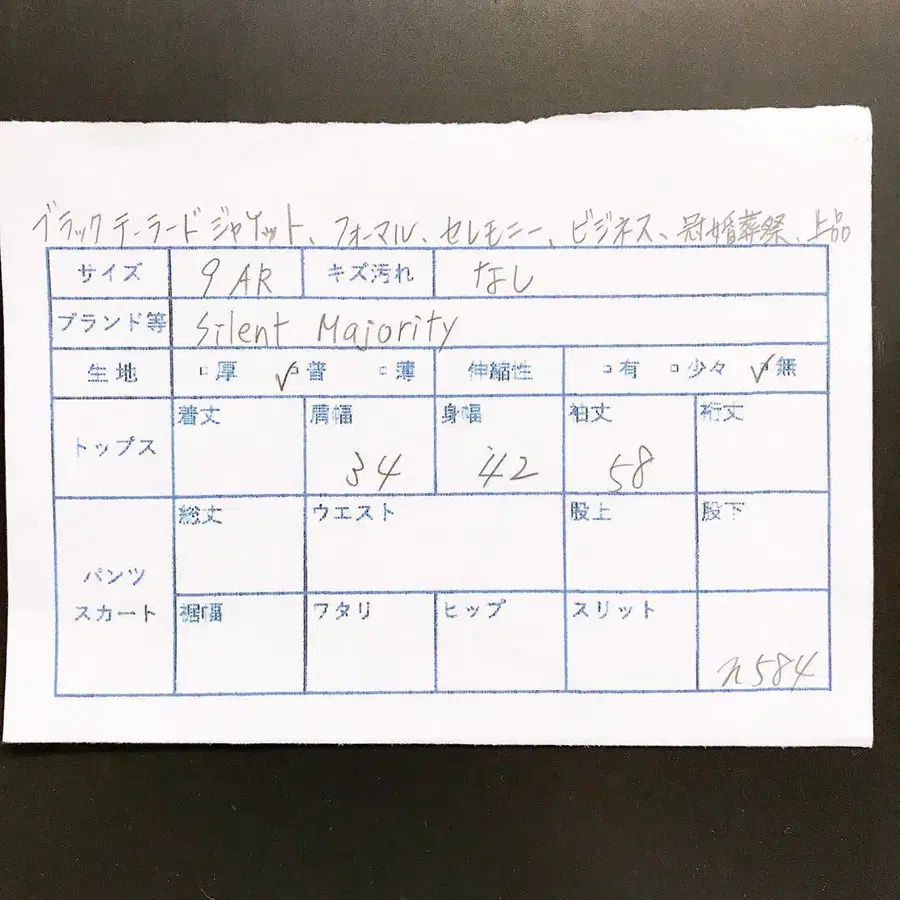 ブラックテーラードジャケット、フォーマル、セレモニー、ビジネス、冠婚葬祭、上品
サイズ 9AR キズ汚れ なし
ブランド等 Silent Majority
生地 □厚 ☑普 □薄 伸縮性 □有 □少々 ☑無
トップス 着丈 肩幅 34 身幅 42 袖丈 58 裄丈
パンツ スカート 総丈 ウエスト 股上 股下
裾幅 ワタリ ヒップ スリット n584